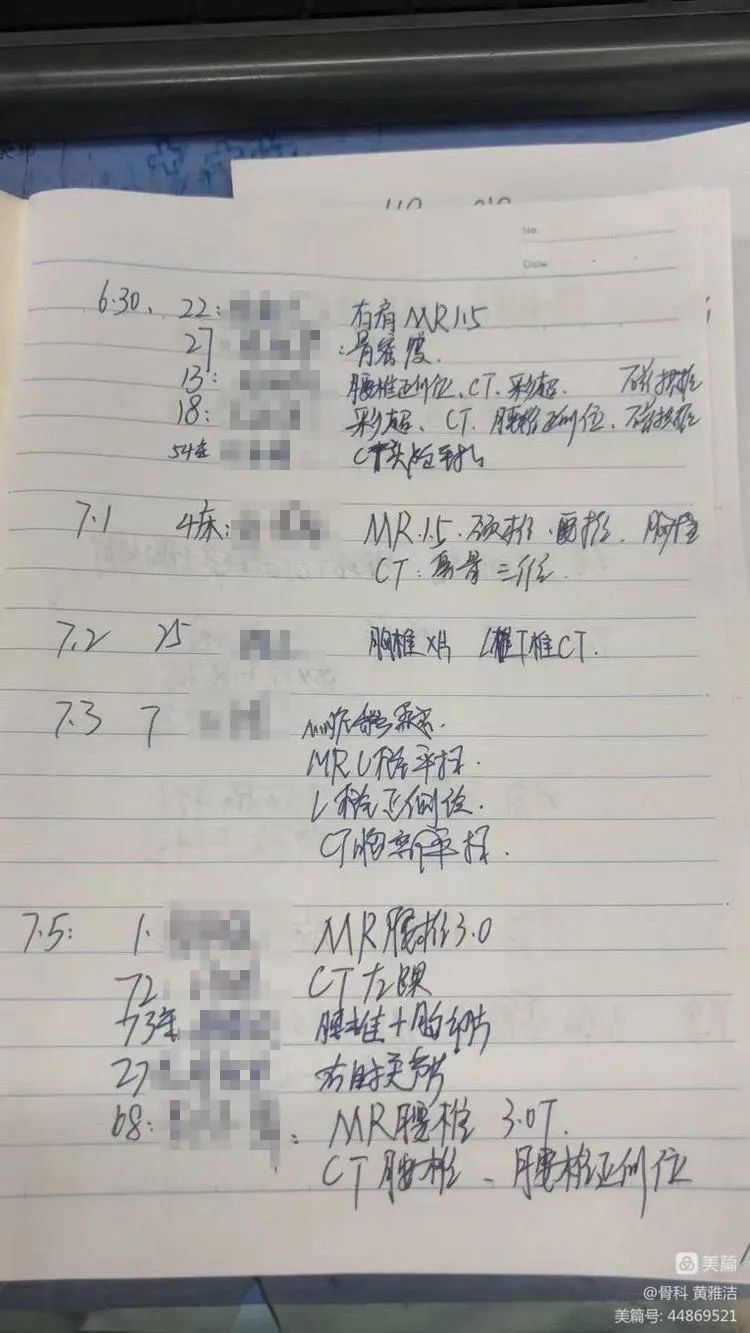 No.
Date
6.30、 22: 右肩MR1.5
27 :骨密度.
13: 腰椎正侧位、CT、彩超.
18: 彩超、CT、腰椎正侧位、
54 CT 平扫
7.1 4床: MR.1.5.颈椎.腰椎.胸椎
CT: 三维
7.2 25 胸椎X片 L椎T椎CT.
7.3 7
MR L椎平扫.
L椎正侧位.
CT胸部平扫.
7.5: 1. MR腰椎3.0
72 CT左踝
73 腰椎+胸片
27 右肘关节片
68: : MR腰椎 3.0T.
CT腰椎、腰椎正侧位
美篇
@骨科 黄雅洁
美篇号: 44869521